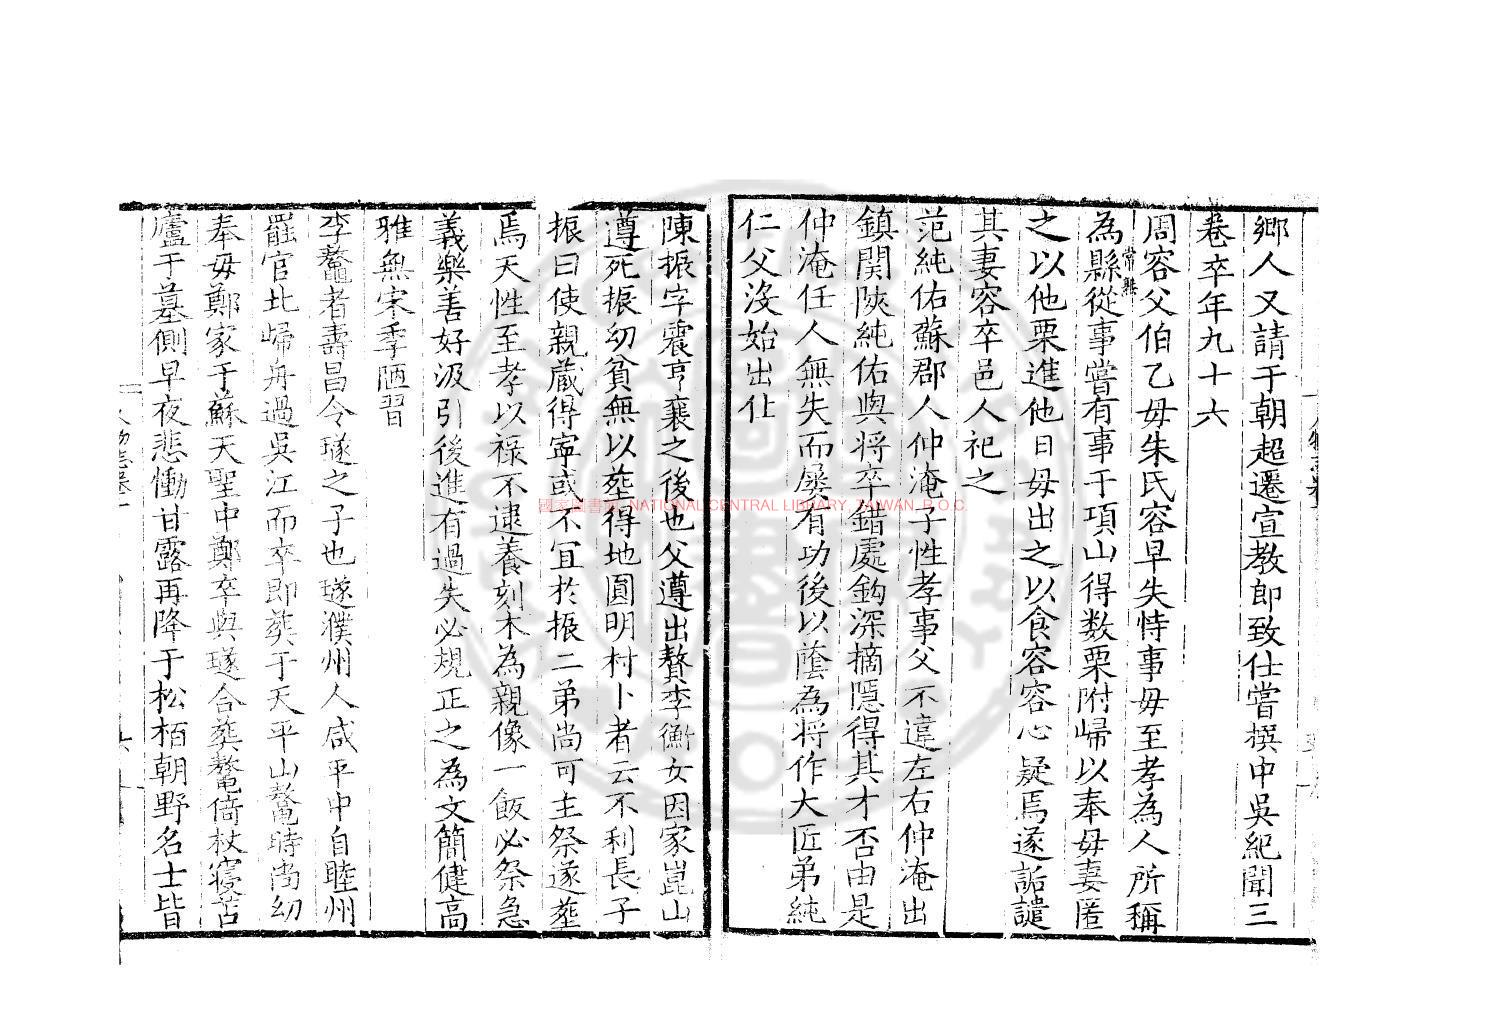 鄉人又請于朝超遷宣教郎致仕嘗撰中吳紀聞三
卷卒年九十六
周容父伯乙母朱氏容早失恃事毋至孝為人所稱
常熟
為縣從事嘗有事于項山得数栗附歸以奉毋妻匿
之以他栗進他日毋出之以食容容心疑焉遂詬譴
其妻容卒邑人祀之
范純佑蘇郡人仲淹子性孝事父不違左右仲淹出
鎮関陜純佑與將卒錯處鈎深摘隱得其才否由是
仲淹任人無失而屢有功後以蔭為將作大匠弟純
仁父沒始出仕
陳振字震亨襄之後也父遵出贅李衡女因家崑山
遵死振幼貧無以塟得地圓明村卜者云不利長子
振曰使親蔵得寧或不宜於振二弟尚可主祭遂塟
焉天性至孝以禄不逮養刻木為親像一飯必祭急
義樂善好汲引後進有過失必規正之為文簡健高
雅無宋季陋習
李鼇者壽昌令璲之子也璲濮州人咸平中自睦州
罷官北歸舟過吳江而卒即葬于天平山鼇時尚幼
奉毋鄭家于蘇天聖中鄭卒與璲合葬鼇倚杖寢苫
廬于墓側早夜悲慟甘露再降于松栢朝野名士皆
國家圖書館 NATIONAL CENTRAL LIBRARY, TAIWAN, R.O.C.